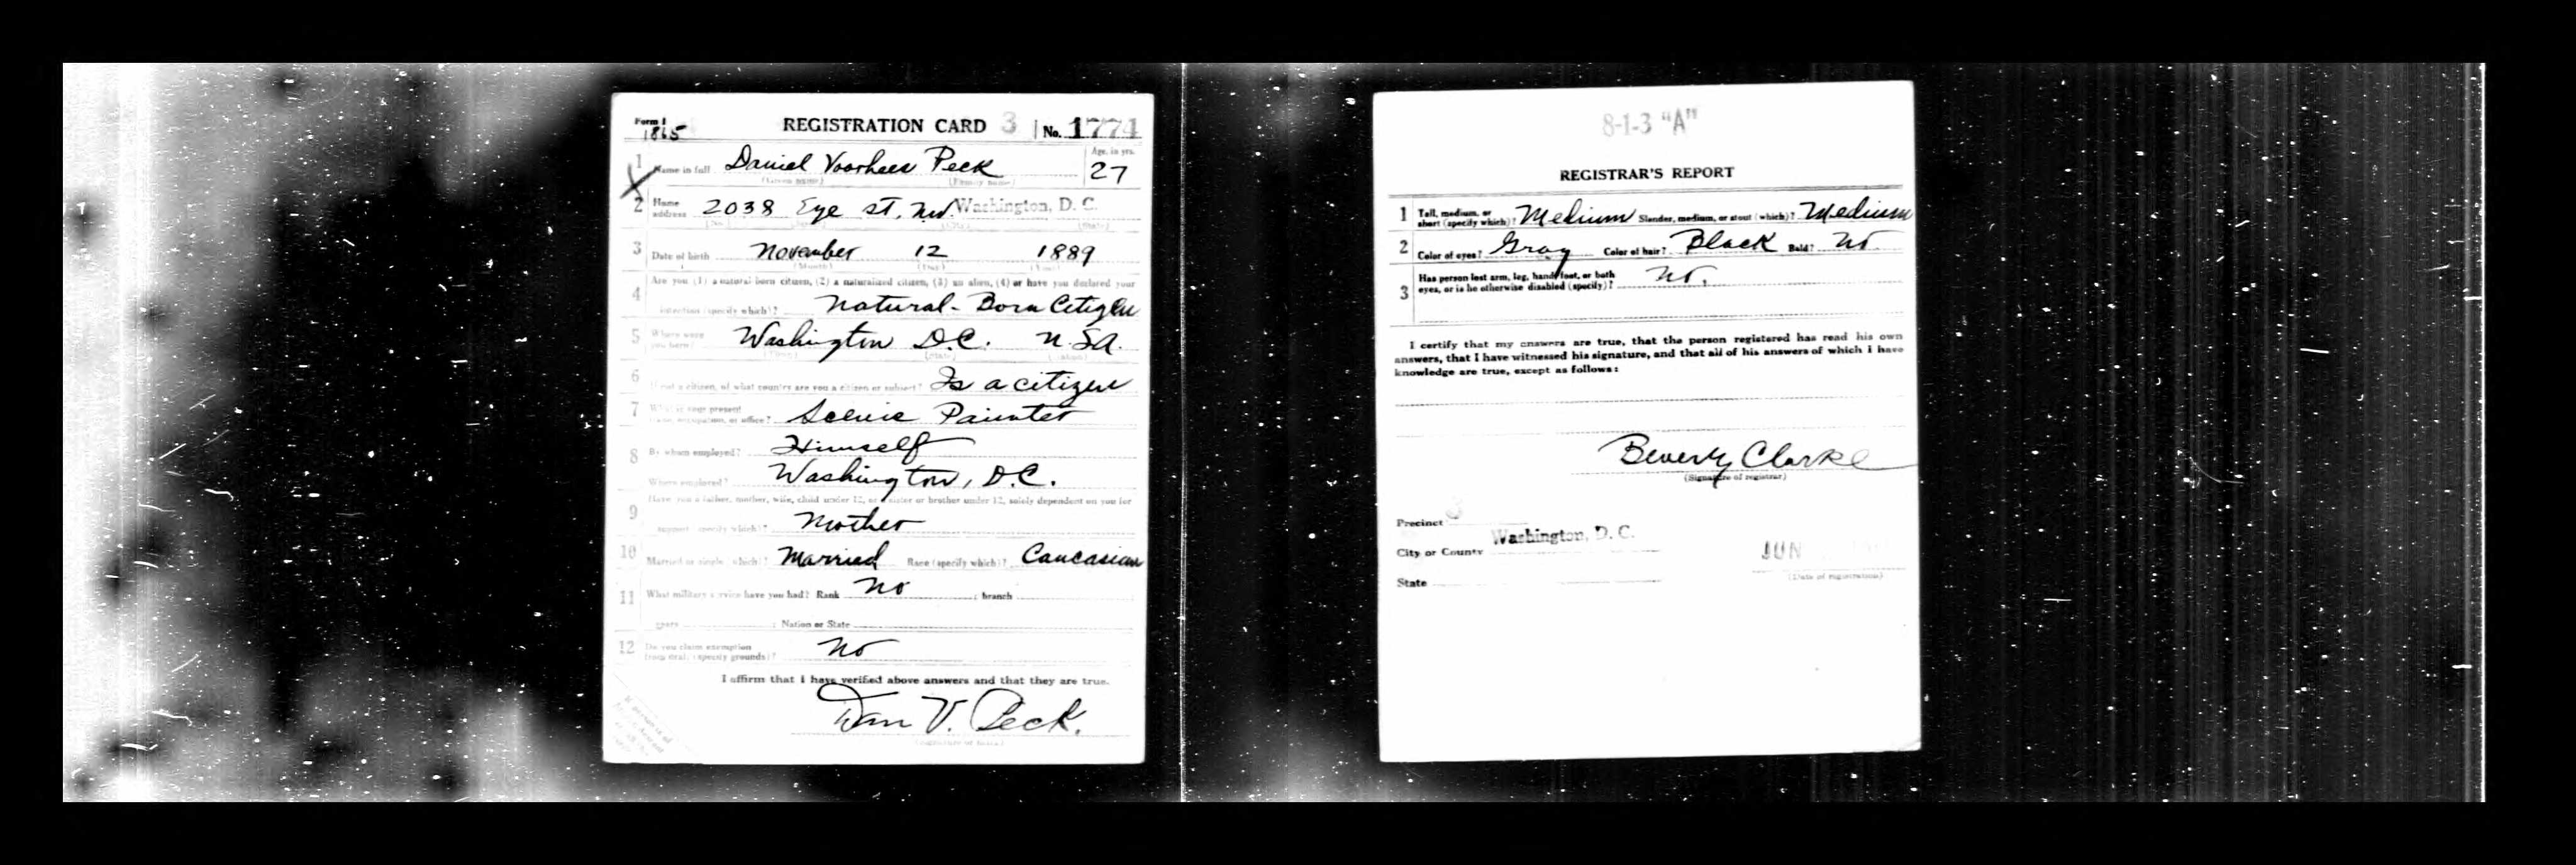 Form 1
1865
REGISTRATION CARD 3 No. 1774
1 Name in full Daniel Voorhees Peck 27
(Given name) (Family name) Age, in yrs.
2 Home address 2038 Eye St. NW. Washington, D. C.
(No.) (State)
3 Date of birth November 12 1889
(Month) (Day) (Year)
Are you (1) a natural-born citizen, (2) a naturalized citizen, (3) an alien, (4) or have you declared your
4 intention (specify which)? Natural-Born Citizen
5 Where were you born? Washington D.C. USA.
(Town) (State) (Nation)
6 If not a citizen, of what country are you a citizen or subject? Is a citizen
7 What is your present trade, occupation, or office? Scenic Painter
8 By whom employed? Himself
Where employed? Washington, D.C.
Have you a father, mother, wife, child under 12, or a sister or brother under 12, solely dependent on you for
9 support (specify which)? Mother
10 Married or single (which)? Married Race (specify which)? Caucasian
11 What military service have you had? Rank No ; branch
years ; Nation or State
12 Do you claim exemption from draft (specify grounds)? No
I affirm that I have verified above answers and that they are true.
Dan V. Peck.
8-1-3 "A"
REGISTRAR'S REPORT
1 Tall, medium, or short (specify which)? Medium Slender, medium, or stout (which)? Medium
2 Color of eyes? Gray Color of hair? Black Bald? No
3 Has person lost arm, leg, hand, foot, or both eyes, or is he otherwise disabled (specify)? No.
I certify that my answers are true, that the person registered has read his own
answers, that I have witnessed his signature, and that all of his answers of which I have
knowledge are true, except as follows:
Beverly Clarke
(Signature of registrar)
Precinct 3
City or County Washington, D. C.
State
JUN
(Date of registration)